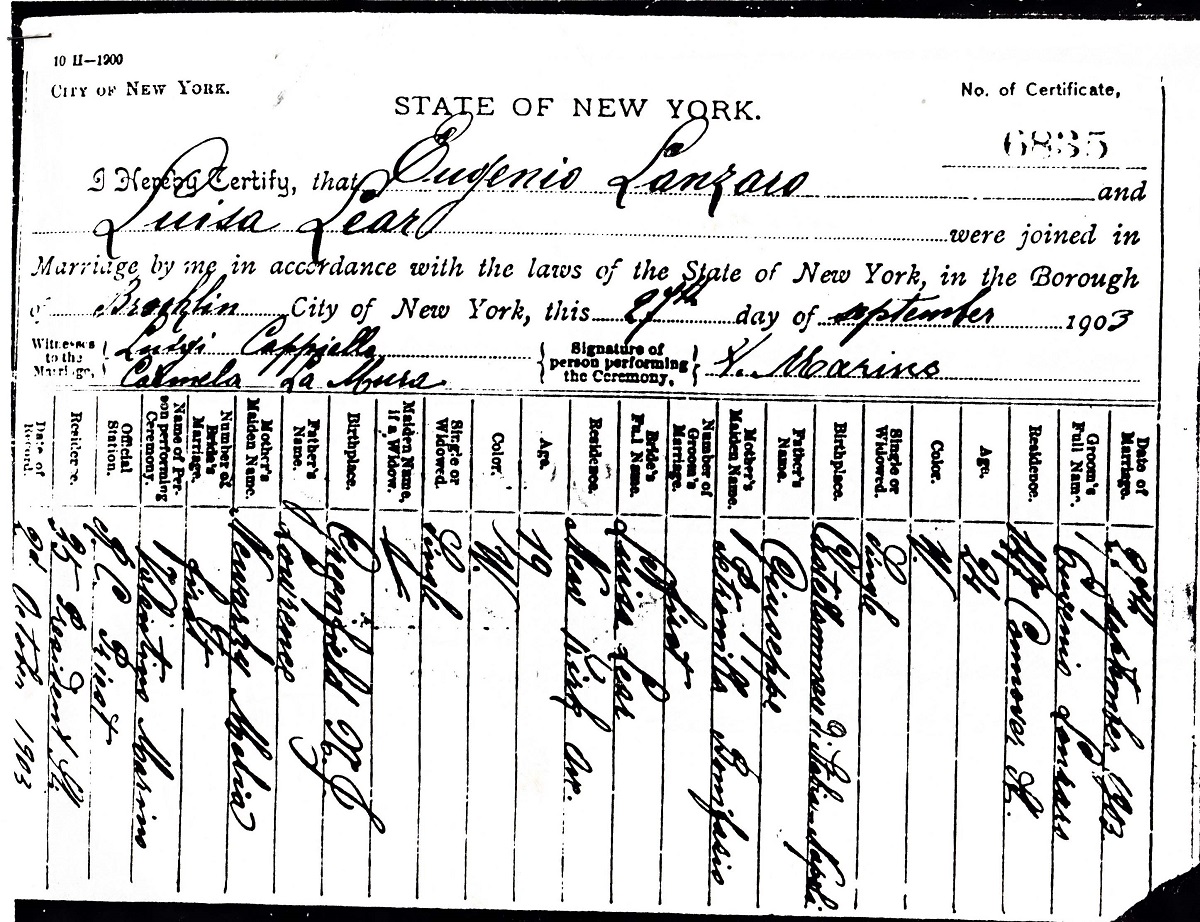 10 II—1900
CITY OF NEW YORK.
STATE OF NEW YORK.
No. of Certificate,
6835
I Hereby Certify, that Eugenio Lanzaro and
Luisa Lear were joined in
Marriage by me in accordance with the laws of the State of New York, in the Borough
of Brooklin City of New York, this 27th day of september 1903
Witnesses to the Marriage, Luigi Cappiello
Carmela La Mura
Signature of person performing the Ceremony, V. Marino
Date of Marriage. 27th september 1903
Groom's Full Name. Eugenio Lanzaro
Residence. St.
Age. 21
Color. W
Single or Widowed. Single
Birthplace. Castellammare di Stabia Napoli
Father's Name. Giuseppe
Mother's Maiden Name. Bonifasio
Number of Groom's Marriage. First
Bride's Full Name. Luisa Lear
Residence. New Kirk Av.
Age. 19
Color. W.
Single or Widowed. Single
Maiden Name, if a Widow.
Birthplace. N. J
Father's Name. Lowrence
Mother's Maiden Name.
Number of Bride's Marriage. First
Name of Person performing Ceremony. Valentino Marino
Official Station. R. C. Priest
Residence. President St.
Date of Record. 2d October 1903